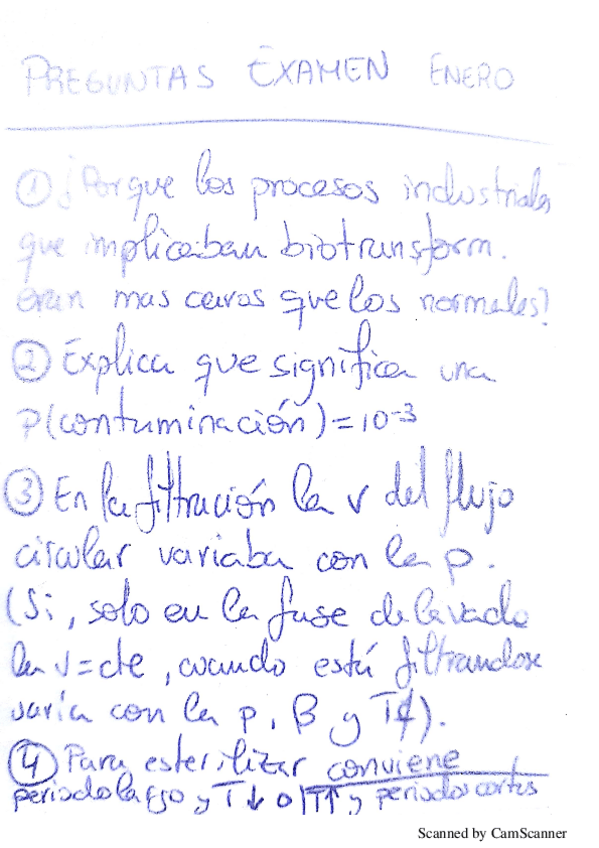 PREGUNTAS EXAMEN ENERO
① ¿Porque los procesos industriales
que implicaban biotransform.
eran mas caros que los normales?
② Explica que significa una
P(contaminación) = 10⁻³
③ En la filtración la v del flujo
circular variaba con la p.
(Si, solo en la fase de lavado
la v = cte, cuando está filtrandose
varía con la p, B y
④ Para esterilizar conviene
periodo largo y T↓ o T↑ y periodos cortos
Scanned by CamScanner